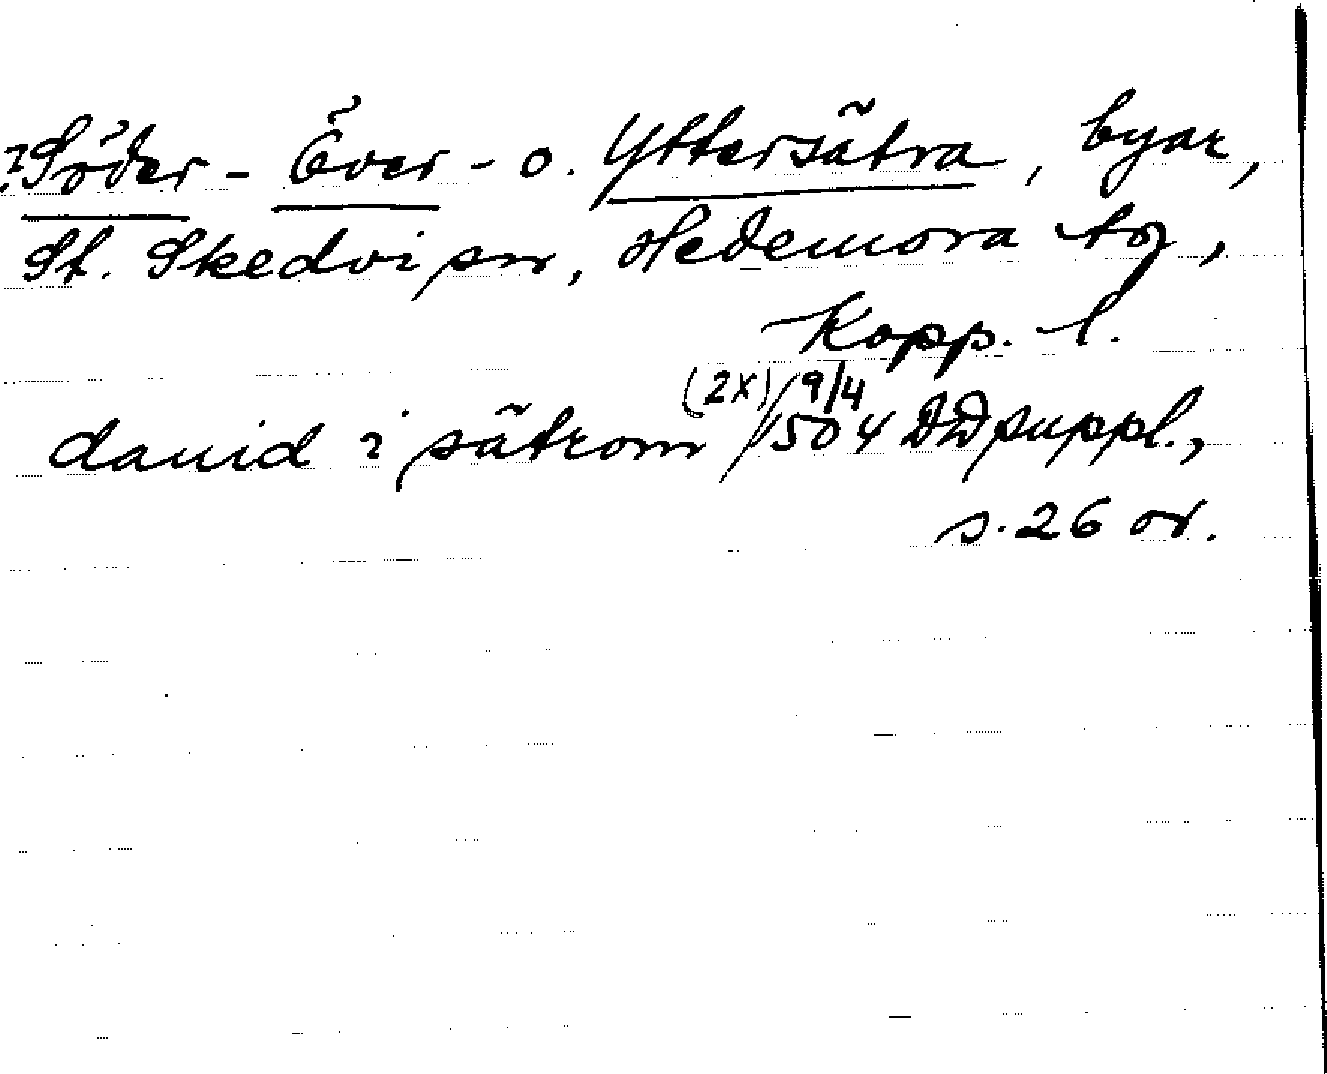 ?Söder- Över- o. Yttersätra, byar,
St. Skedvi sn, Hedemora tg,
Kopp. l.
dauid i sätrom (2x) 9/4 1504 DD suppl.,
s. 26 or.